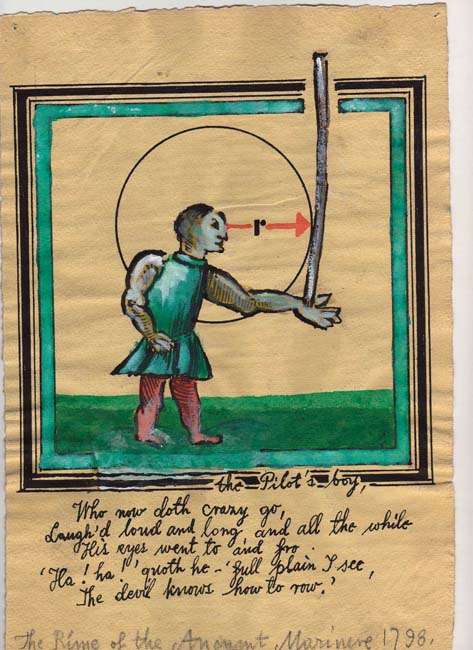 r
the Pilot's boy,
Who now doth crazy go,
Laugh'd loud and long, and all the while
His eyes went to and fro.
'Ha! ha!' quoth he - 'full plain I see,
The devil knows how to row.'
The Rime of the Ancyent Marinere 1798.